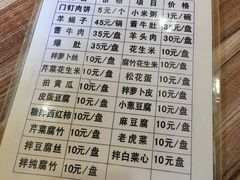 价格 项目 价格
门钉肉饼 5元/个 小米粥 1元/碗
羊蝎子 45元/锅 酱牛肚 35元/盘
酱牛肉 35元/盘 羊头肉 30元/盘
爆肚 30元/盘 花生米 10元/盘
芹菜花生米 10元/盘 腐竹花生米 10元/盘
炸花生米 10元/盘 松花蛋 10元/盘
拍黄瓜 10元/盘 拌萝卜皮 10元/盘
皮蛋豆腐 10元/盘 小葱豆腐 10元/盘
糖拌西红柿 10元/盘 麻豆腐 10元/盘
芹菜腐竹 10元/盘 老虎菜 10元/盘
拌豆腐丝 10元/盘 拌白菜心 10元/盘
拌纯腐竹 10元/盘